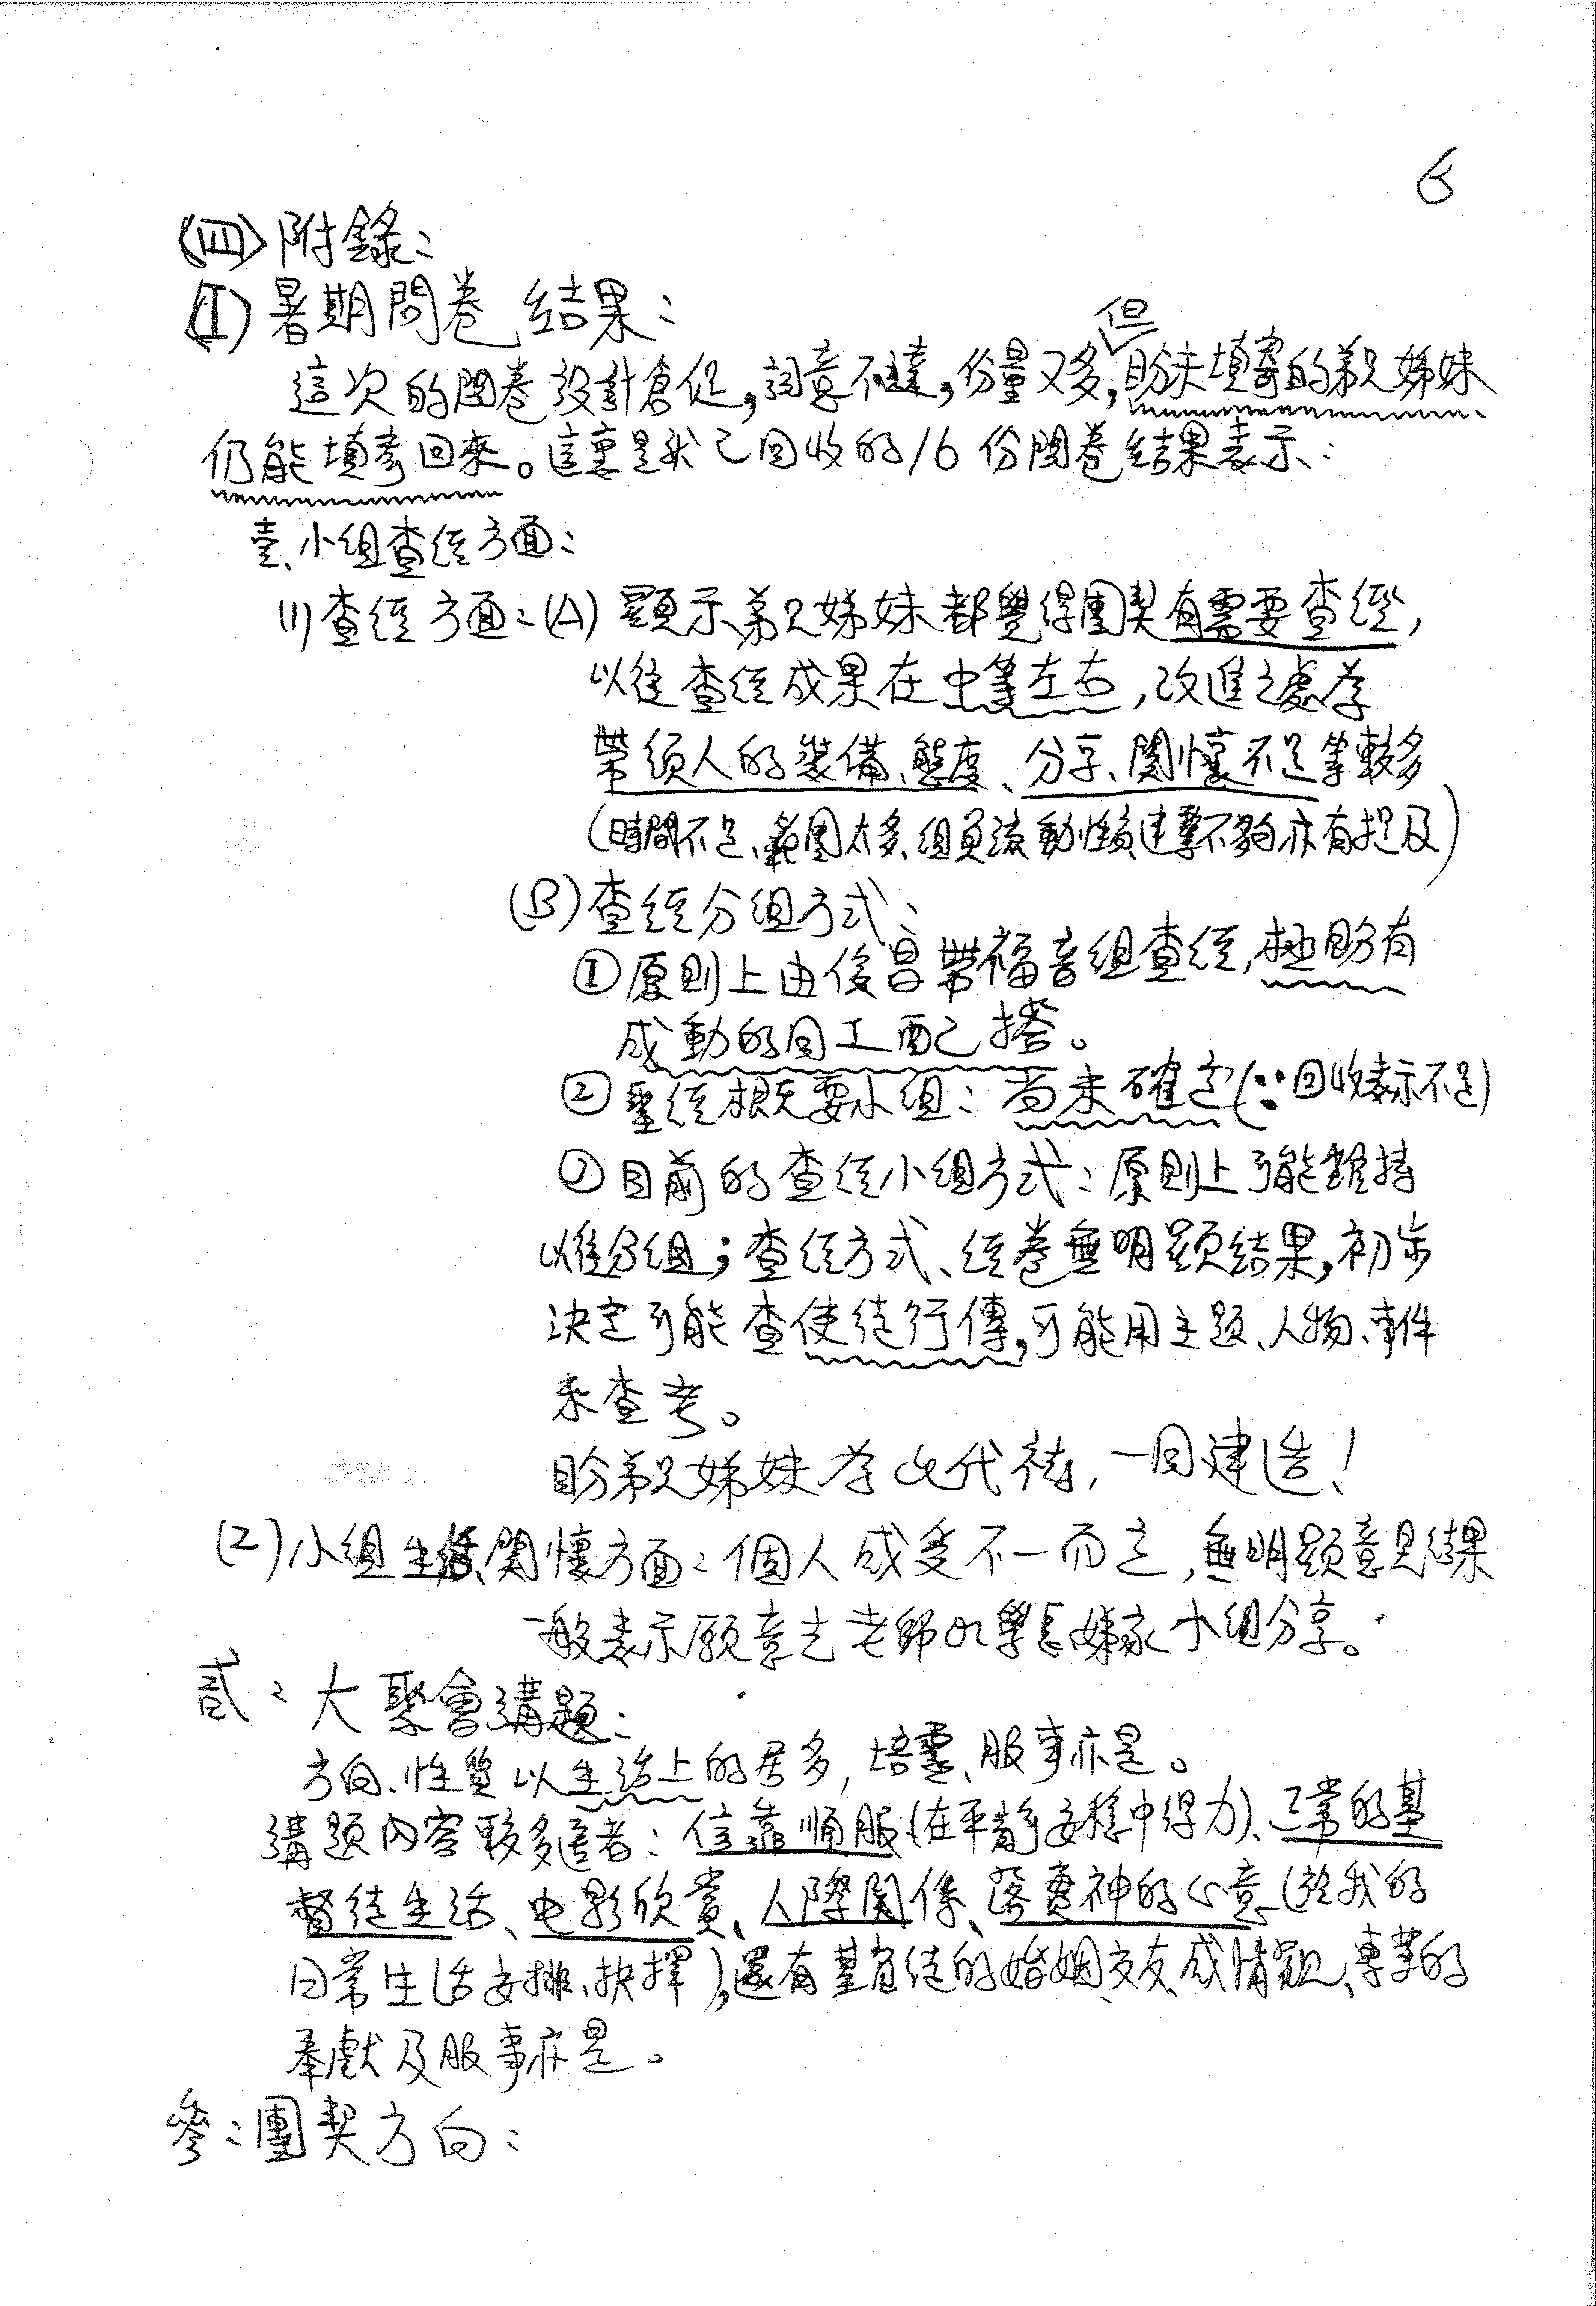 6
(四)附錄:
(I)暑期問卷結果:
但
這次的問卷設計倉促,詞意不達,份量又多,盼未填寄的弟兄姊妹
仍能填寄回來。這裏是我已回收的16份問卷結果表示:
壹、小組查經方面:
(1)查經方面:(A)顯示弟兄姊妹都覺得團契有需要查經,
以往查經成果在中等左右,改進之處為
帶領人的裝備、態度、分享、關懷不足等較多
(時間不足、範圍太多、組員流動懶、連繫不夠亦有提及)
(B)查經分組方式:
①原則上由俊昌帶福音組查經,極盼有
感動的同工配搭。
②聖經概要小組:尚未確定(∵回收表示不足)
③目前的查經小組方式:原則上可能維持
以往分組;查經方式、經卷無明顯結果,初步
決定可能查使徒行傳,可能用主題、人物、事件
來查考。
盼弟兄姊妹為此代禱,一同建造!
(2)小組生活、關懷方面:個人感受不一而足,無明顯意見結果
一般表示願意去老師 學長姊家小組分享。
貳:大聚會講題:
方向、性質以生活上的居多,培靈、服事亦是。
講題內容較多選者:信靠順服(在平靜安穩中得力)、正常的基
督徒生活、电影欣賞、人際關係、落實神的心意(於我的
日常生活安排、抉擇),還有基督徒的婚姻、交友、感情觀、專業的
奉獻及服事亦是。
參:團契方向: